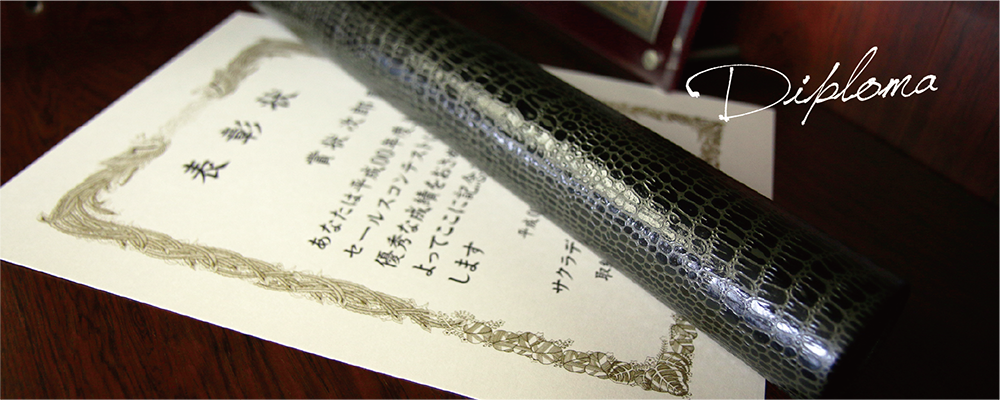 Diploma
表彰状
賞状次郎
あなたは平成00年度
セールスコンテスト
優秀な成績をおさ
よってここに記念
します
平成
サクラデ
取